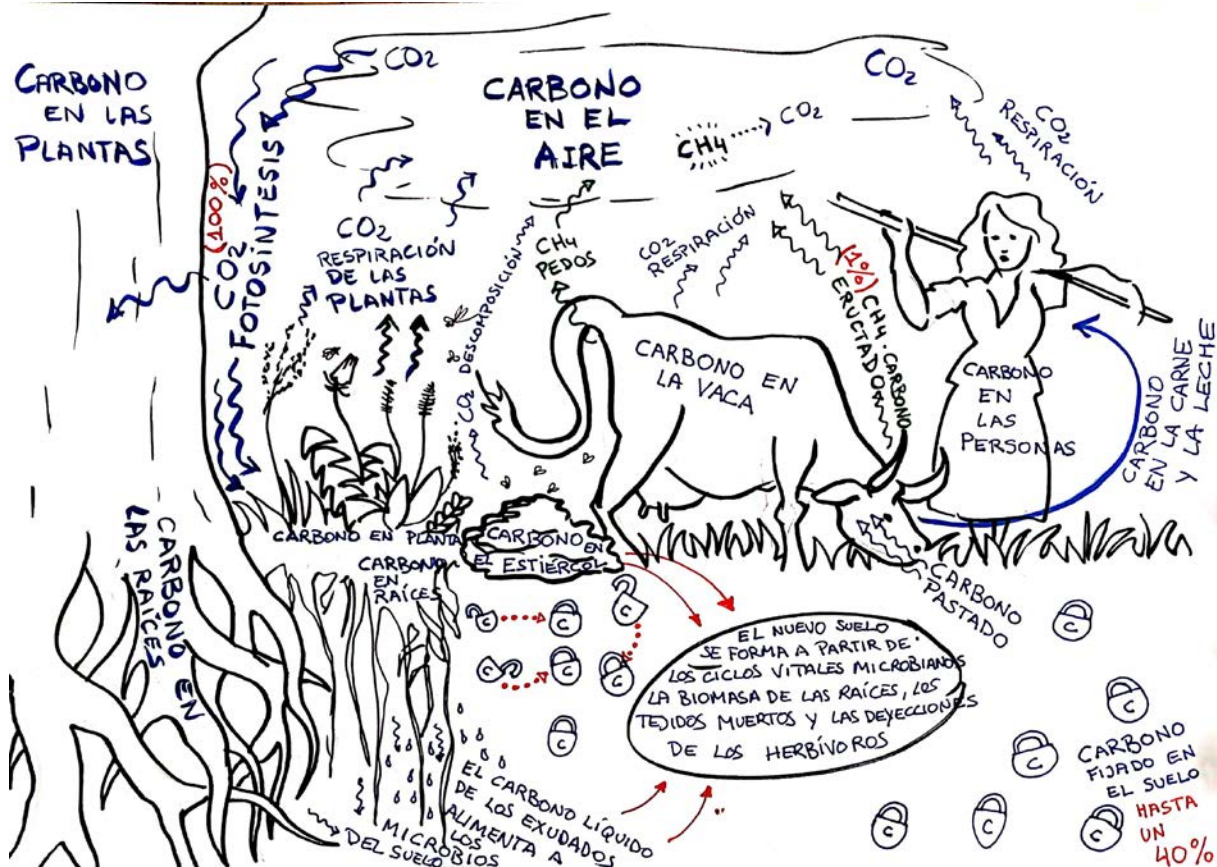 CARBONO
EN LAS
PLANTAS
CO2
(100%)
CO2
FOTOSÍNTESIS
CO2
RESPIRACIÓN
DE LAS
PLANTAS
CARBONO
EN EL
AIRE
CH4
CO2
CO2
CO2
RESPIRACIÓN
CO2 DESCOMPOSICIÓN
CH4
PEDOS
CO2
RESPIRACIÓN
(1%)
CH4 · CARBONO
ERUCTADO
CARBONO EN
LA VACA
CARBONO
EN
LAS
PERSONAS
CARBONO
EN LA CARNE
Y LA LECHE
CARBONO EN
LAS RAÍCES
CARBONO EN PLANTA
CARBONO
EN
RAÍCES
CARBONO EN
EL ESTIÉRCOL
CARBONO
PASTADO
C
C
C
C
C
C
C
EL NUEVO SUELO
SE FORMA A PARTIR DE
LOS CICLOS VITALES MICROBIANOS
LA BIOMASA DE LAS RAÍCES, LOS
TEJIDOS MUERTOS Y LAS DEYECCIONES
DE LOS HERBÍVOROS
EL CARBONO LÍQUIDO
DE LOS EXUDADOS
ALIMENTA A
LOS
MICROBIOS
DEL SUELO
C
C
C
C
C
C
CARBONO
FIJADO EN
EL SUELO
HASTA
UN
40%